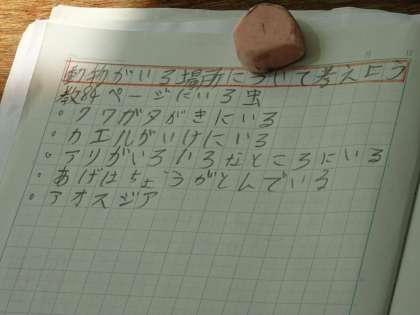 動物がいる場所について考えよう
教84ページにいる虫
・クワガタがきにいる
・カエルがいけにいる
・アリがいろいろなところにいる
・あげはちょうがとんでいる
・アオスジア